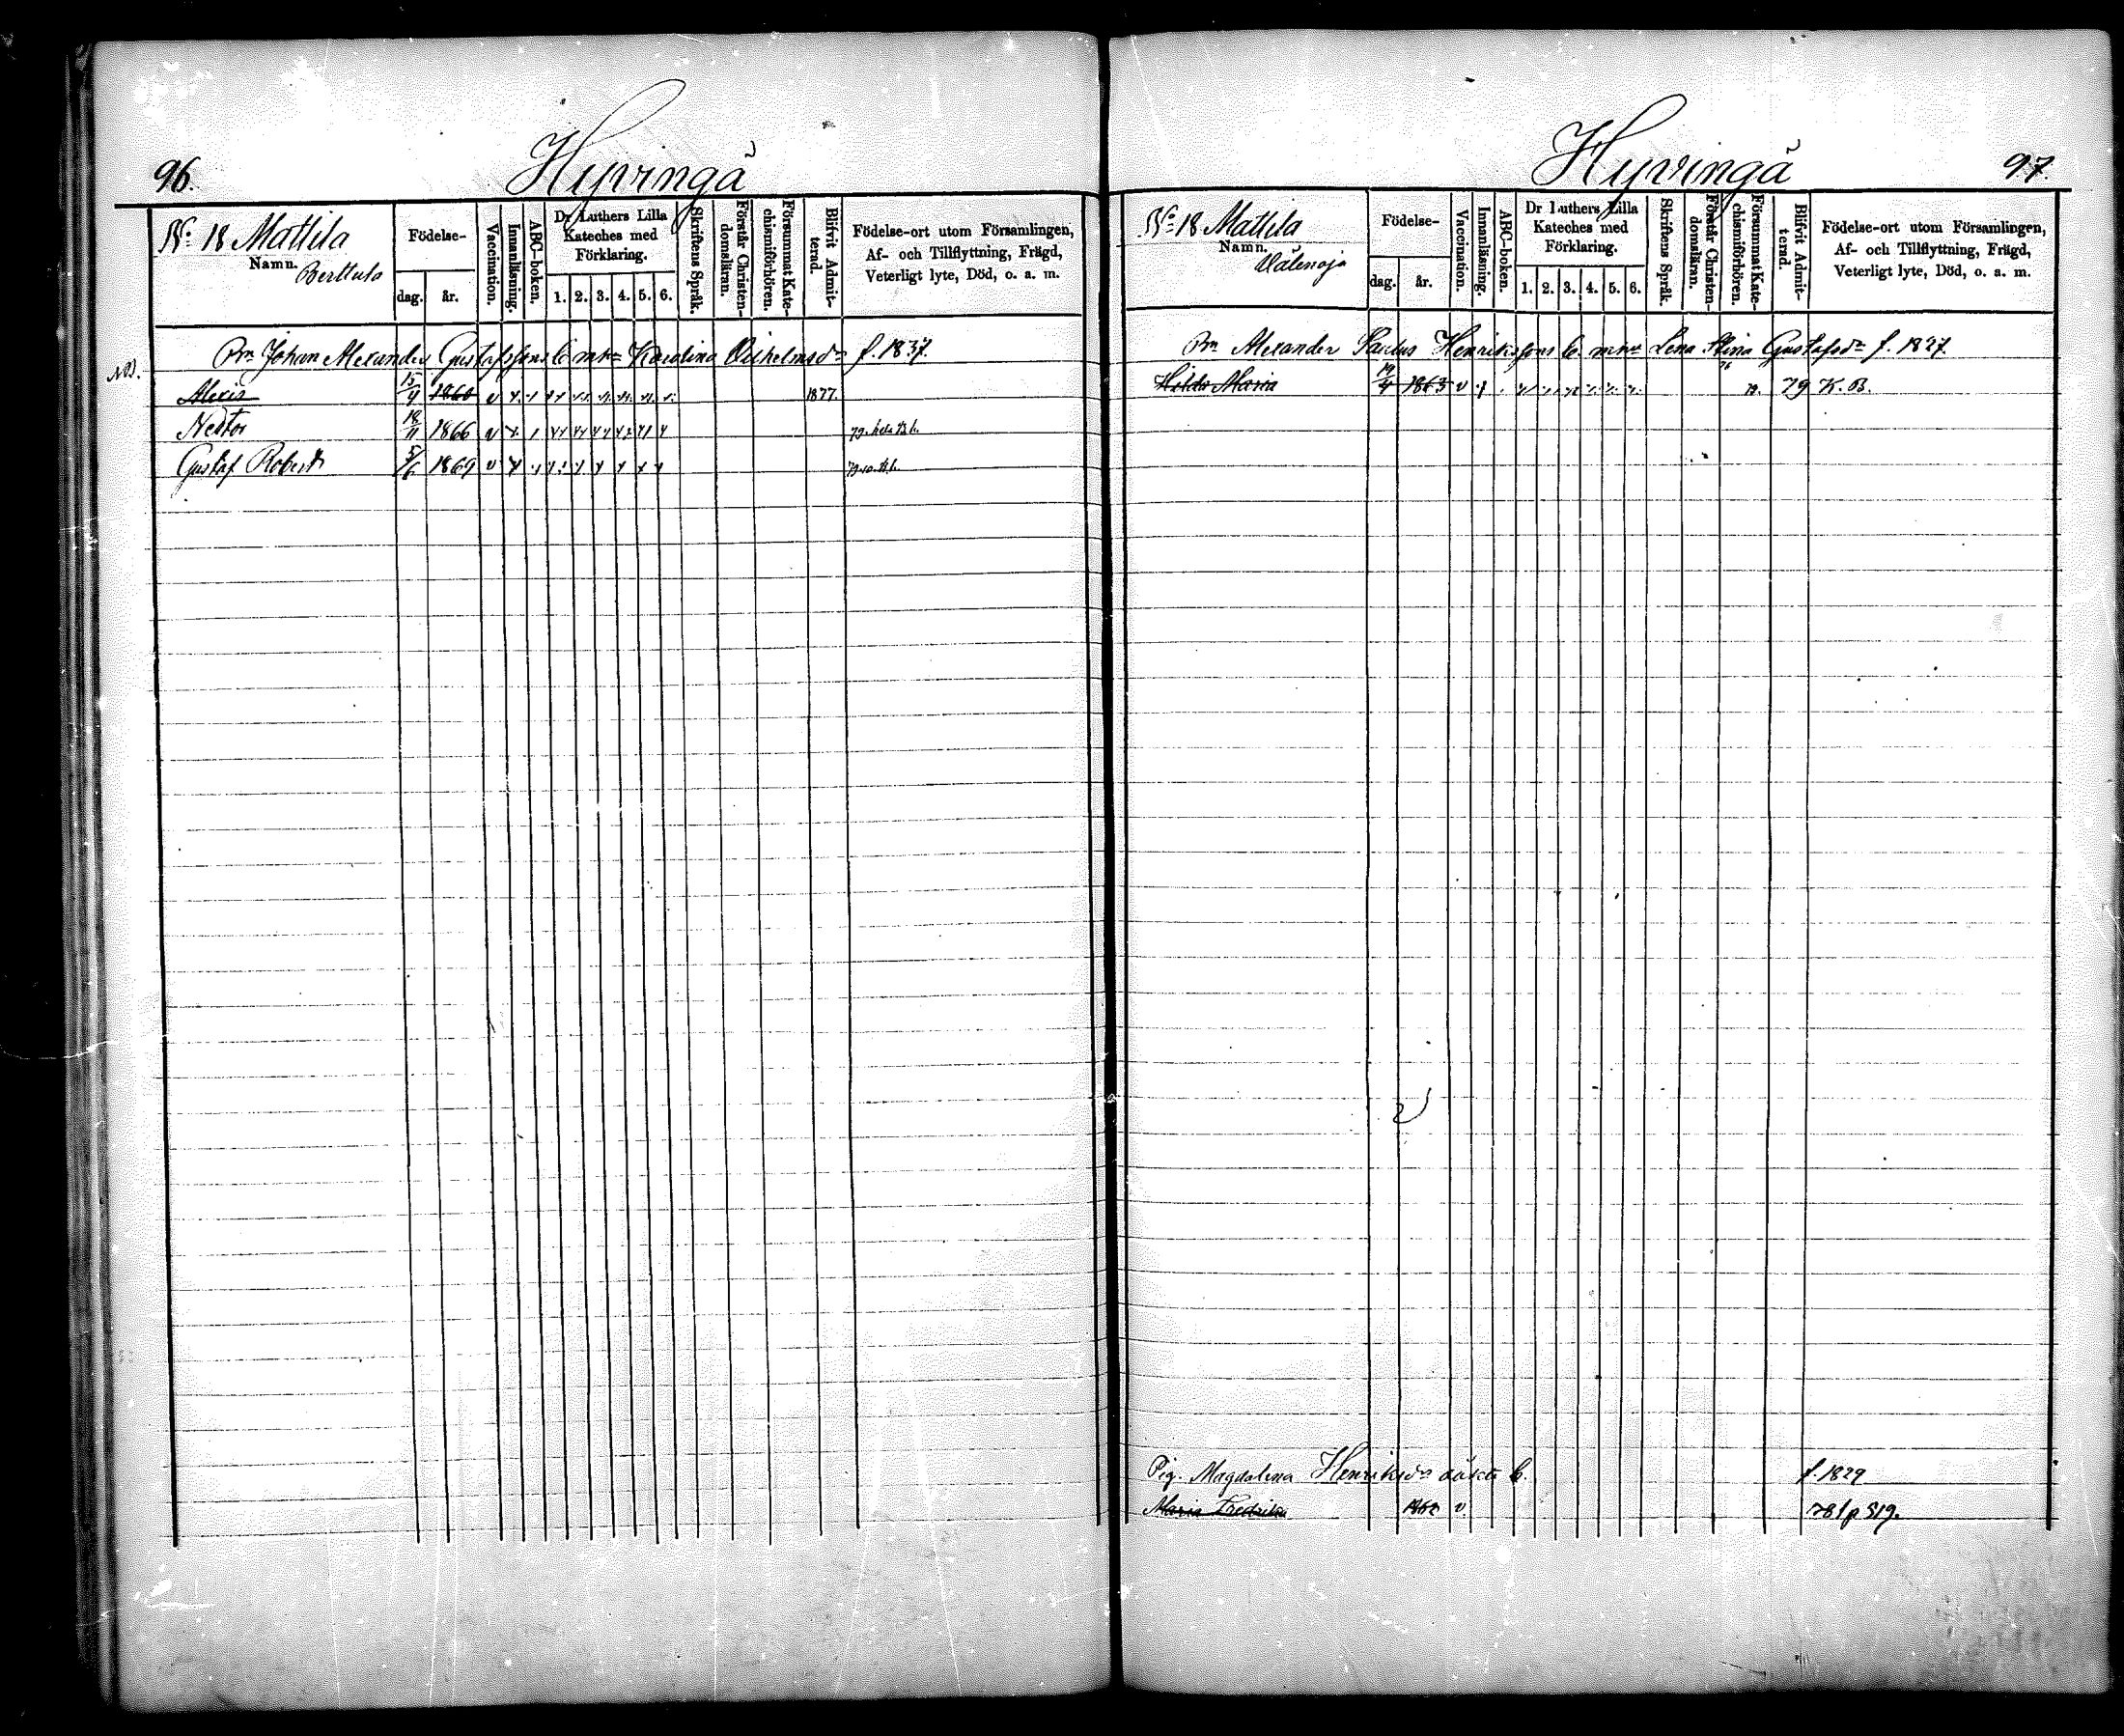 96.
Hyvingä
No 18 Mattila
Namn.
Berttula
Födelse-
dag.
år.
Vaccination.
Innanläsning.
ABC-boken.
Dr Luthers Lilla
Kateches med
Förklaring.
1. 2. 3. 4. 5. 6.
Skriftens Språk.
Förstår Christen-
domsläran.
Försummat Kate-
chismiförhören.
Blifvit Admit-
terad.
Födelse-ort utom Församlingen,
Af- och Tillflyttning, Frägd,
Veterligt lyte, Död, o. a. m.
Bn Johan Alexander Gustafssons b. m. h. Karolina Wilhelmsdr f. 1837.
NB.
Alexis 15/4 1860 v 1877.
Nestor 18/11 1866 v
Gustaf Robert 5/6 1869 v
97.
Hyvingä
No 18 Mattila
Namn.
Välenoja
Födelse-
dag.
år.
Vaccination.
Innanläsning.
ABC-boken.
Dr Luthers Lilla
Kateches med
Förklaring.
1. 2. 3. 4. 5. 6.
Skriftens Språk.
Förstår Christen-
domsläran.
Försummat Kate-
chismiförhören.
Blifvit Admit-
terad.
Födelse-ort utom Församlingen,
Af- och Tillflyttning, Frägd,
Veterligt lyte, Död, o. a. m.
Bn Alexander Paulus Henrikssons b. m. h. Lena Stina Gustafsdr f. 1827.
Hilda Maria 19/4 1863 v 79 K. B.
Pig. Magdalena Henriksdr oäkta b. f. 1829
Maria Fredrika v. 78/p 519.